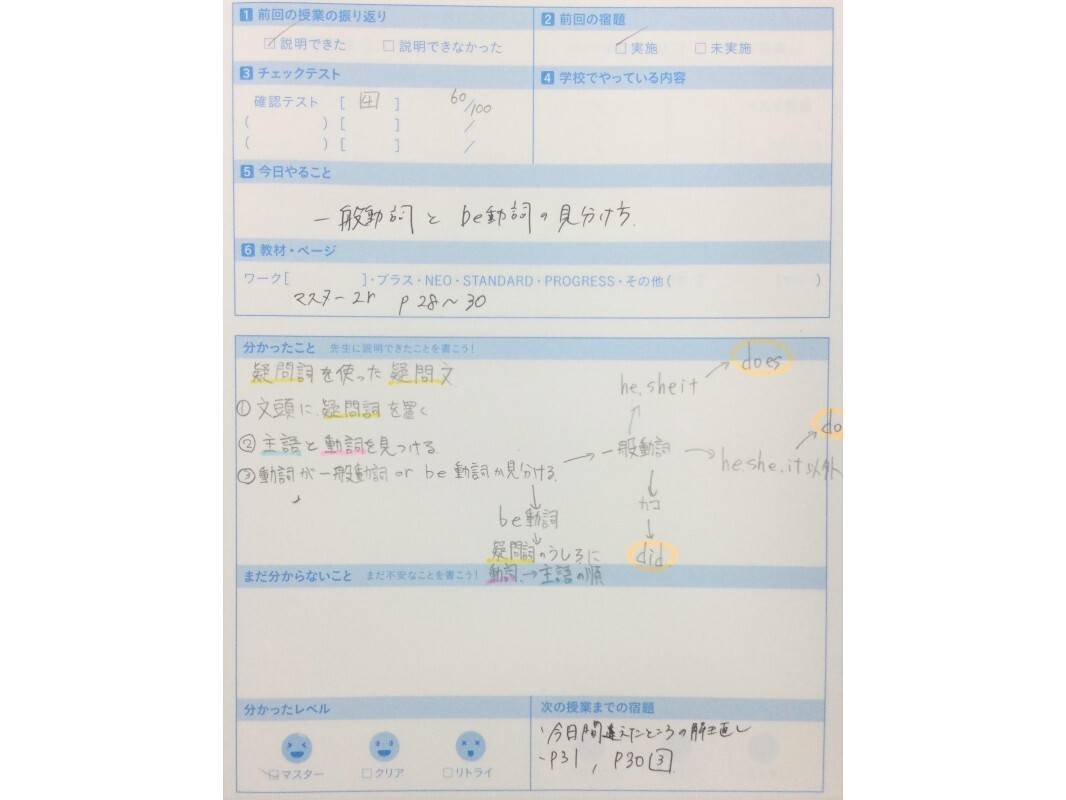 1 前回の授業の振り返り
☑ 説明できた □ 説明できなかった
2 前回の宿題
☑ 実施 □ 未実施
3 チェックテスト
確認テスト [ 4 ] 60/100
( ) [ ] /
( ) [ ] /
4 学校でやっている内容
5 今日やること
一般動詞と be動詞の見分け方.
6 教材・ページ
ワーク[ ]・プラス・NEO・STANDARD・PROGRESS・その他( )
マスター 2n P 28〜30
分かったこと 先生に説明できたことを書こう!
疑問詞を使った疑問文
①文頭に、疑問詞を置く
②主語と動詞を見つける.
③動詞が一般動詞 or be動詞か見分ける.
→ 一般動詞
he, she it → does
→ he. she. it 以外 → do
カコ
did
be動詞
疑問詞のうしろに
動詞 → 主語の順
まだ分からないこと まだ不安なことを書こう!
分かったレベル
☑マスター □クリア □リトライ
次の授業までの宿題
・今日間違えたところの解き直し
・P31, P30 3